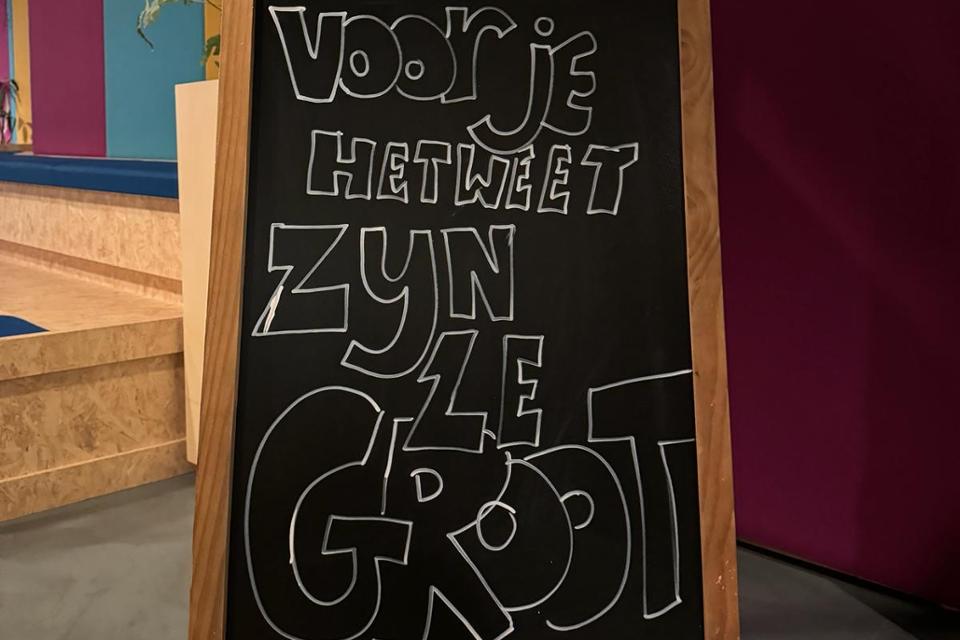 VOOR JE
HET WEET
ZYN
ZE
GROOT